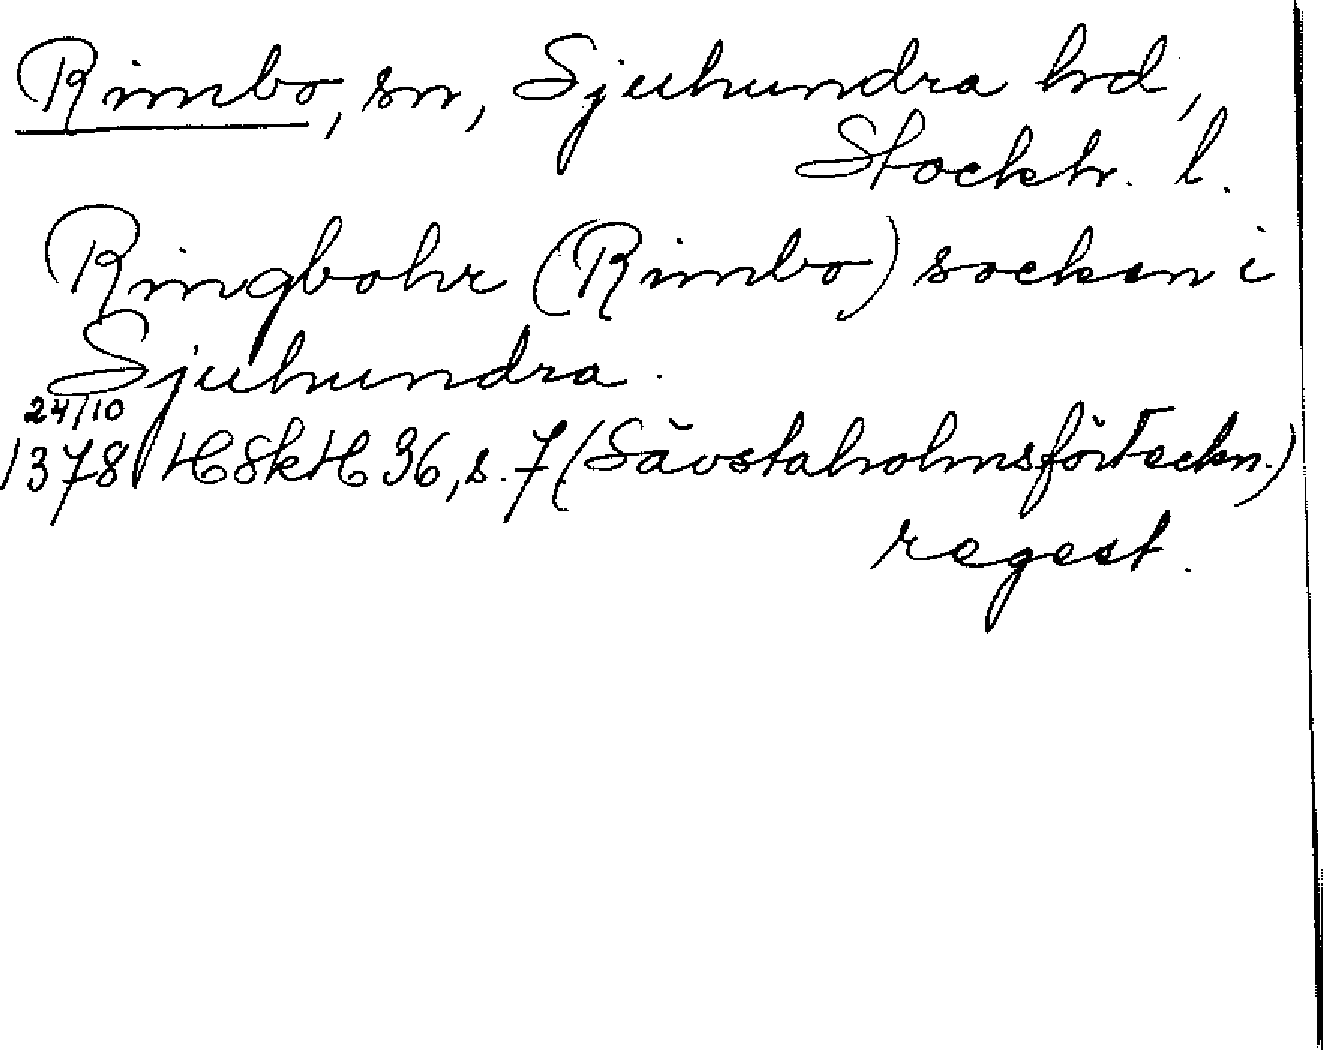 Rimbo, sn, Sjuhundra hd,
Stockh. l.
Ringbohr (Rimbo) socken i
Sjuhundra.
24/10
1378 HSkH 36, s. 7 (Sävstaholmsförteckn.)
regest.